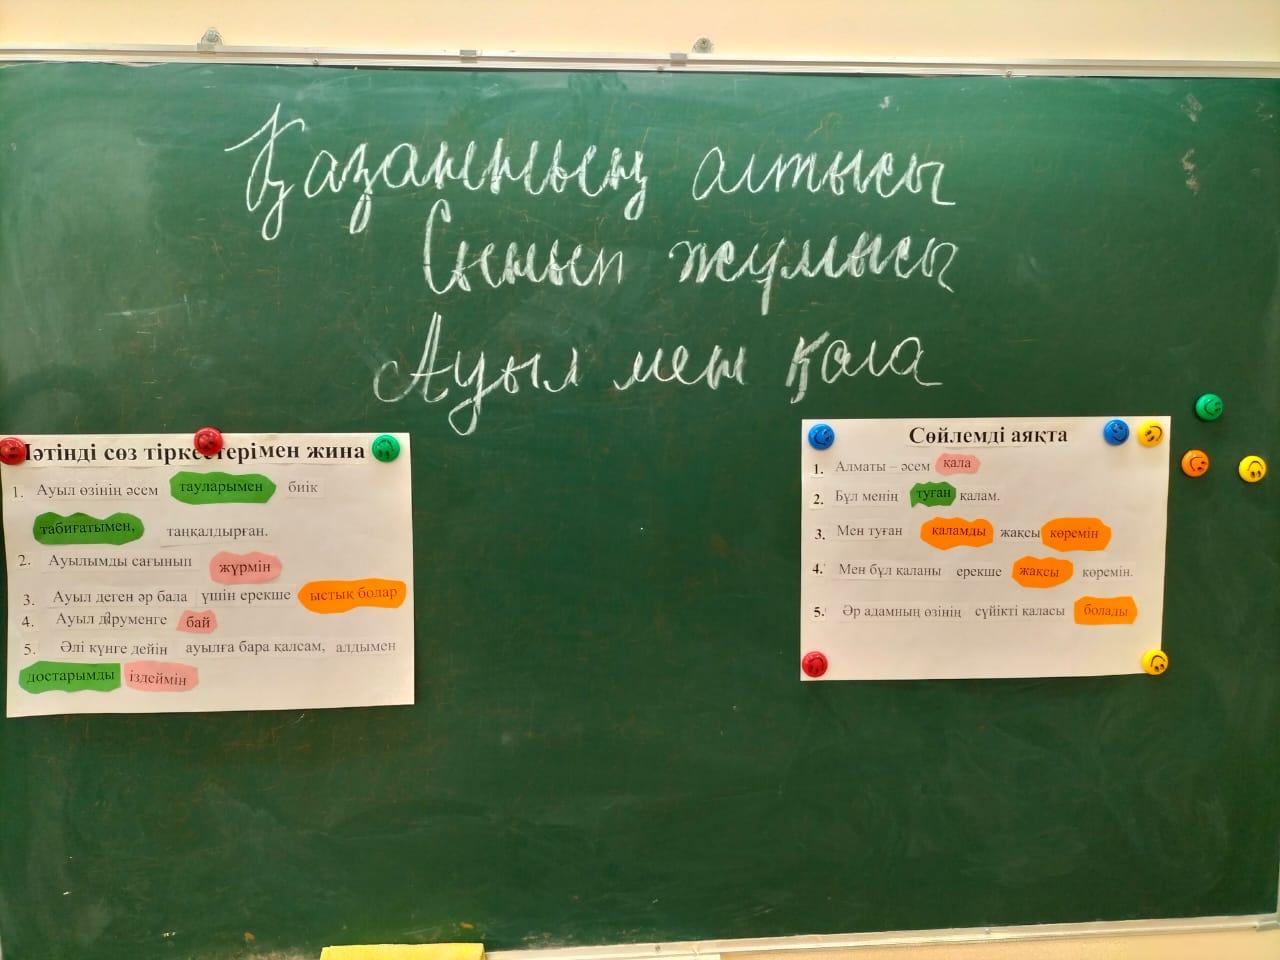 Қазанның алтысы
Сынып жұмысы
Ауыл мен қала
Мәтінді сөз тіркестерімен жина
1. Ауыл өзінің әсем тауларымен биік
табиғатымен, таңқалдырған.
2. Ауылымды сағынып жүрмін
3. Ауыл деген әр бала үшін ерекше ыстық болар
4. Ауыл дәруменге бай
5. Әлі күнге дейін ауылға бара қалсам, алдымен
достарымды іздеймін
Сөйлемді аяқта
1. Алматы – әсем қала
2. Бұл менің туған қалам.
3. Мен туған қаламды жақсы көремін
4. Мен бұл қаланы ерекше жақсы көремін.
5. Әр адамның өзінің сүйікті қаласы болады